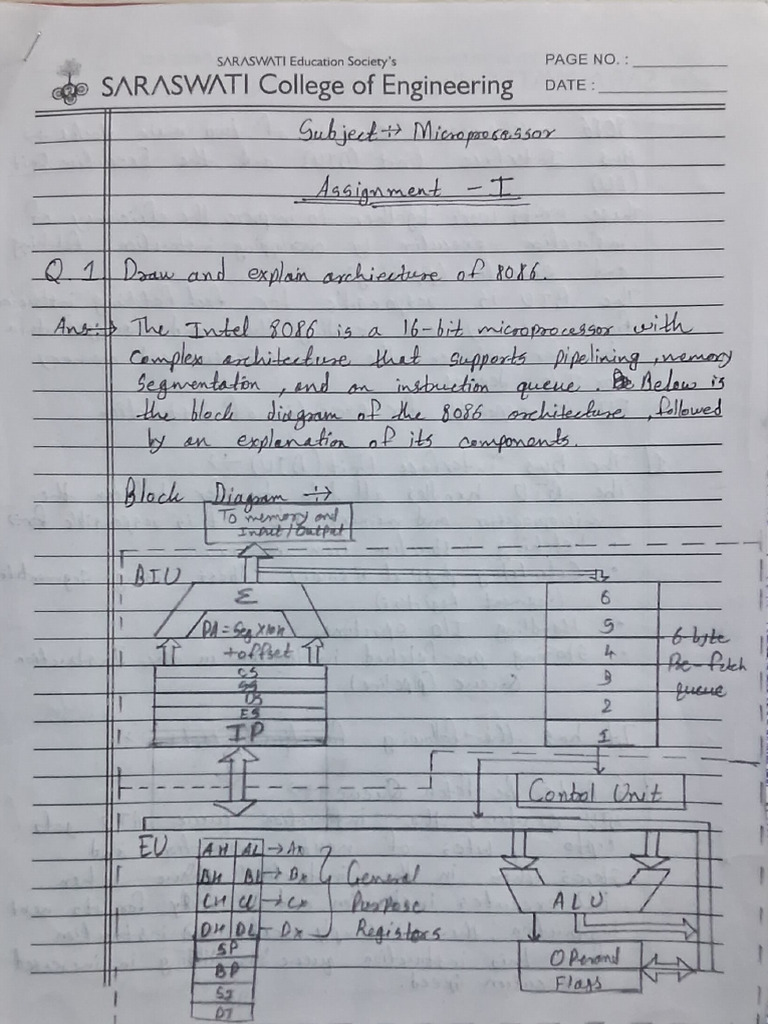 SARASWATI Education Society's
SARASWATI College of Engineering
PAGE NO. :
DATE :
Subject :→ Microprocessor
Assignment - I
Q. 1 Draw and explain archiecture of 8086.
Ans:→ The Intel 8086 is a 16-bit microprocessor with
complex architecture that supports pipelining, memory
segmentation, and an instruction queue. Below is
the block diagram of the 8086 architecture, followed
by an explanation of its components.
Block Diagram :→
To memory and
Input/Output
BIU
Σ
PA = Seg X 10H
+ offset
CS
SS
DS
ES
IP
6
5
4
3
2
1
6 byte
Pre-fetch
queue
Control Unit
EU
AH AL → AX
BH BL → BX
CH CL → CX
DH DL - DX
General
Purpose
Registors
SP
BP
SI
DI
ALU
Operand
Flags